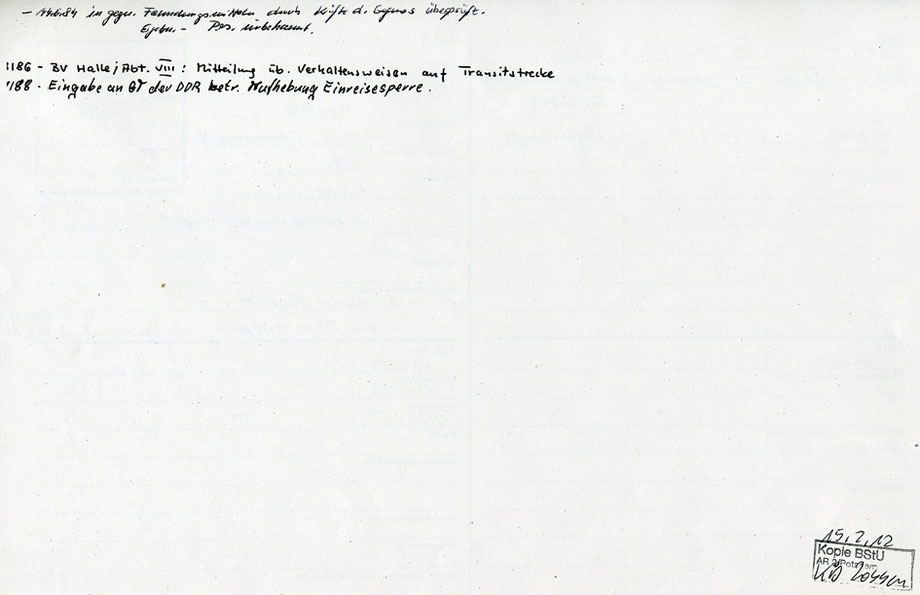 - in gegn. Fahndungsmitteln durch Kräfte d. Gegners überprüft.
Ergebn. - Pers. unbekannt.
1186 - BV Halle, Abt. VIII: Mitteilung üb. Verhaltensweisen auf Transitstrecke
188 - Eingabe an der DDR betr. Aufhebung Einreisesperre.
15.2.12
Kopie BStU
AR 3/Potsdam